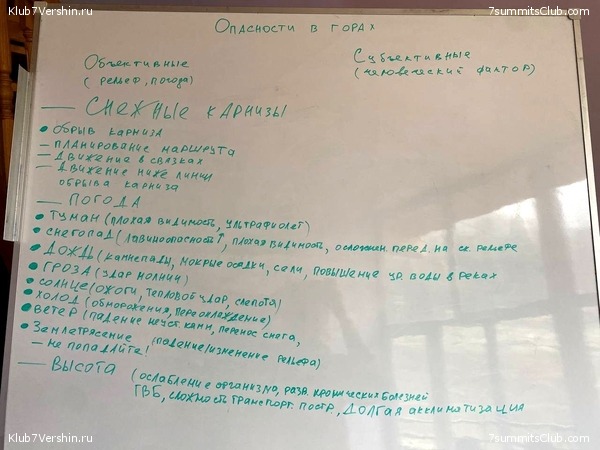 Klub7Vershin.ru
7summitsClub.com
Опасности в горах
Объективные
(рельеф, погода)
Субъективные
(человеческий фактор)
— Снежные карнизы
• обрыв карниза
— планирование маршрута
— движение в связках
— движение ниже линии
обрыва карниза
— Погода
• туман (плохая видимость, ультрафиолет)
• снегопад (лавиноопасность↑, плохая видимость, осложнен. перед. на ск. рельефе
• дождь (камнепады, мокрые осадки, сели, повышение ур. воды в реках
• гроза (удар молнии)
• солнце (ожоги, тепловой удар, слепота)
• холод (обморожения, переохлаждение)
• ветер (падение неуст. камн, перенос снега,
• Землетрясение (падение/изменение рельефа)
— не попадайте!
— Высота (ослабление организма, разв. хронических болезней
ГВБ, сложность транспорт. постр, долгая акклиматизация
Klub7Vershin.ru
7summitsClub.com